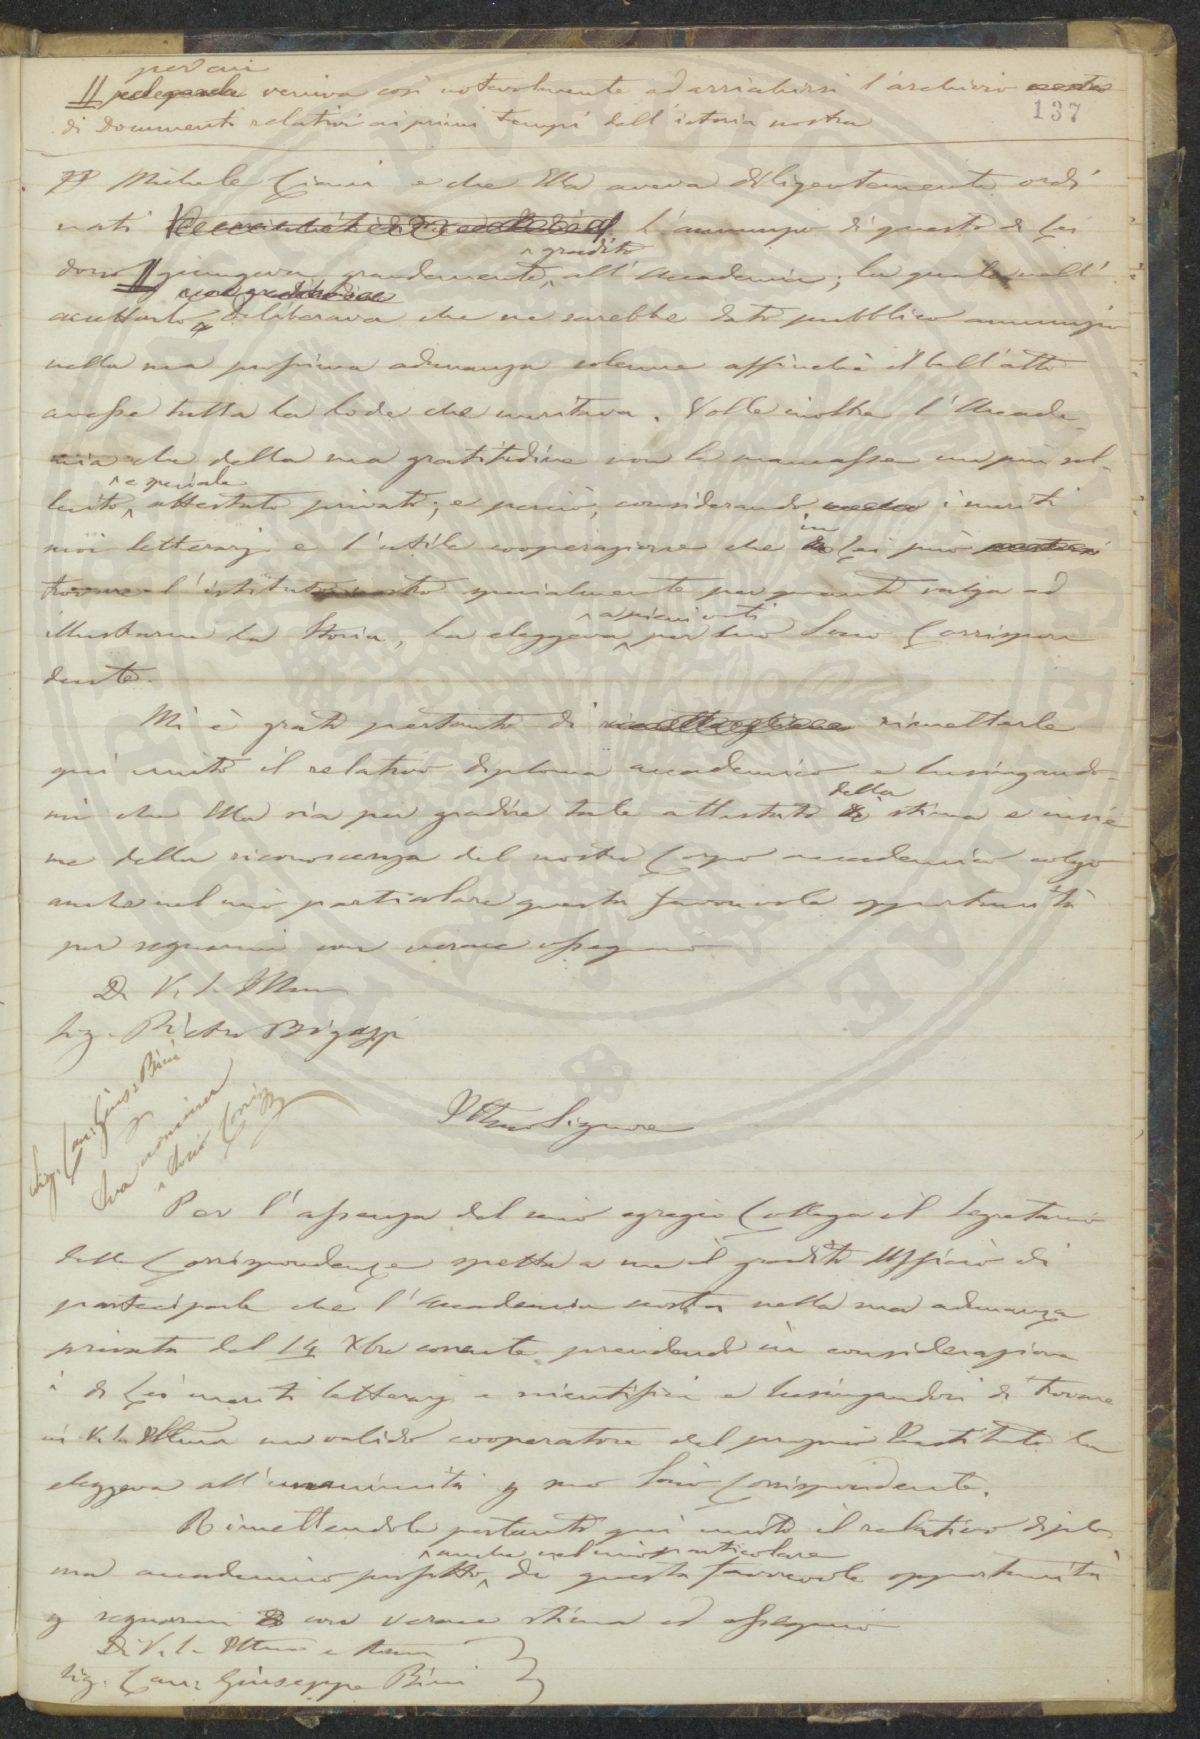 per cui
veniva così notevolmente ad arricchirsi l'archivio nostro
137
di Documenti relativi ai primi tempi dell'istoria nostra
Michele e che Ella aveva diligentemente ordi
nati l'annunzio di questo di Lei
gradito
dono giungeva grandemente all'Accademia; la quale nell'
accettarlo deliberava che ne sarebbe dato pubblico annunzio
nella sua prossima adunanza solenne affinchè il bell'atto
avesse tutta la lode che meritava. Volle inoltre l'Accade
mia che della sua gratitudine non le mancasse un più sol-
e speciale
lecito attestato privato; e perciò, considerando i meriti
in
suoi letterarj e l'utile cooperazione che Lei può
trovare l'istituto nostro specialmente per quanto valga ad
a pieni voti
illustrarne la Storia, La eleggeva per suo Socio Corrispon
dente.
Mi è grato pertanto di rimetterle
qui unito il relativo diploma accademico e lusingando-
della
mi che Ella sia per gradire tale attestato di stima e insie
me della riconoscenza del nostro Corpo accademico colgo
anche nel mio particolare questa favorevole opportunità
per segnarmi con verace ossequio
Di V. S. Illma
Sig. Pietro Bigazzi
Sig. Cav. Gius. Bini
Sua nomina
a Socio Corrisp
Illmo Signore
Per l'assenza del mio egregio Collega il Segretario
delle Corrispondenze spetta a me il gradito Ufficio di
partecipale che l'Accademia nostra nella sua adunanza
privata del 14 Xbre corrente prendendo in considerazione
i di Lei meriti letterarj e scientifici e lusingandosi di trovare
in V. S. Illma un valido cooperatore del proprio Instituto La
eleggeva all'unanimità p suo Socio Corrispondente.
Rimettendole pertanto qui unito il relativo diplo
anche nel mio particolare
ma accademico profitto di questa favorevole opportunità
p segnarmi con verace stima ed ossequio
Di V. S. Illma e
Sig. Cav. Giuseppe Bini